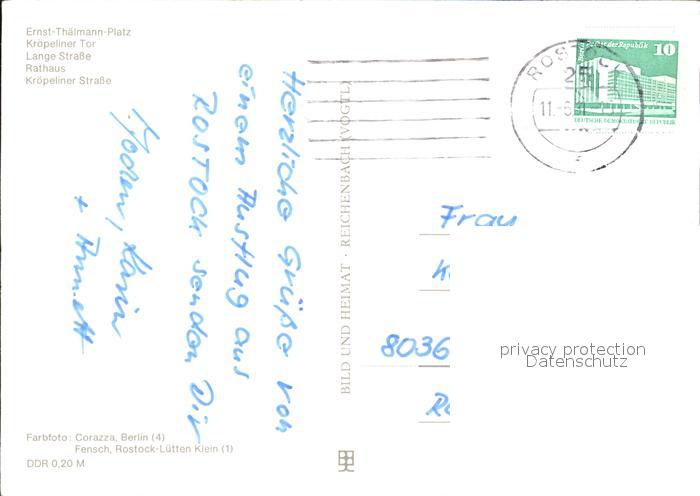 Ernst-Thälmann-Platz
Kröpeliner Tor
Lange Straße
Rathaus
Kröpeliner Straße
Herzliche Grüße von
einem Ausflug aus
ROSTOCK senden Dir
Karin
+ Annett
BILD UND HEIMAT · REICHENBACH (VOGTL)
ROSTOCK
25
10
DEUTSCHE DEMOKRATISCHE REPUBLIK
Frau
8036
privacy protection
Datenschutz
Farbfoto: Corazza, Berlin (4)
Fensch, Rostock-Lütten Klein (1)
DDR 0,20 M